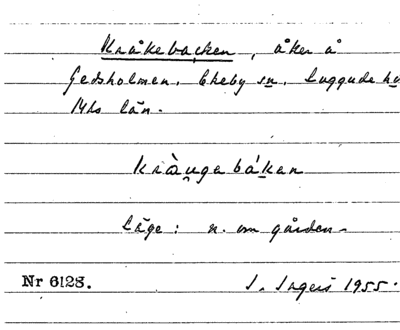 Kråkebacken, åker å
Gedsholmen, Ekeby sn, Luggude h
Mhs län.
kràu̯gabákan
Läge: n. om gården
Nr 6128. I. Ingers 1955.